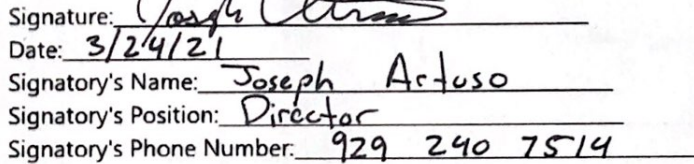 Signature: Joseph
Date: 3/24/21
Signatory's Name: Joseph Artuso
Signatory's Position: Director
Signatory's Phone Number: 929 240 7514